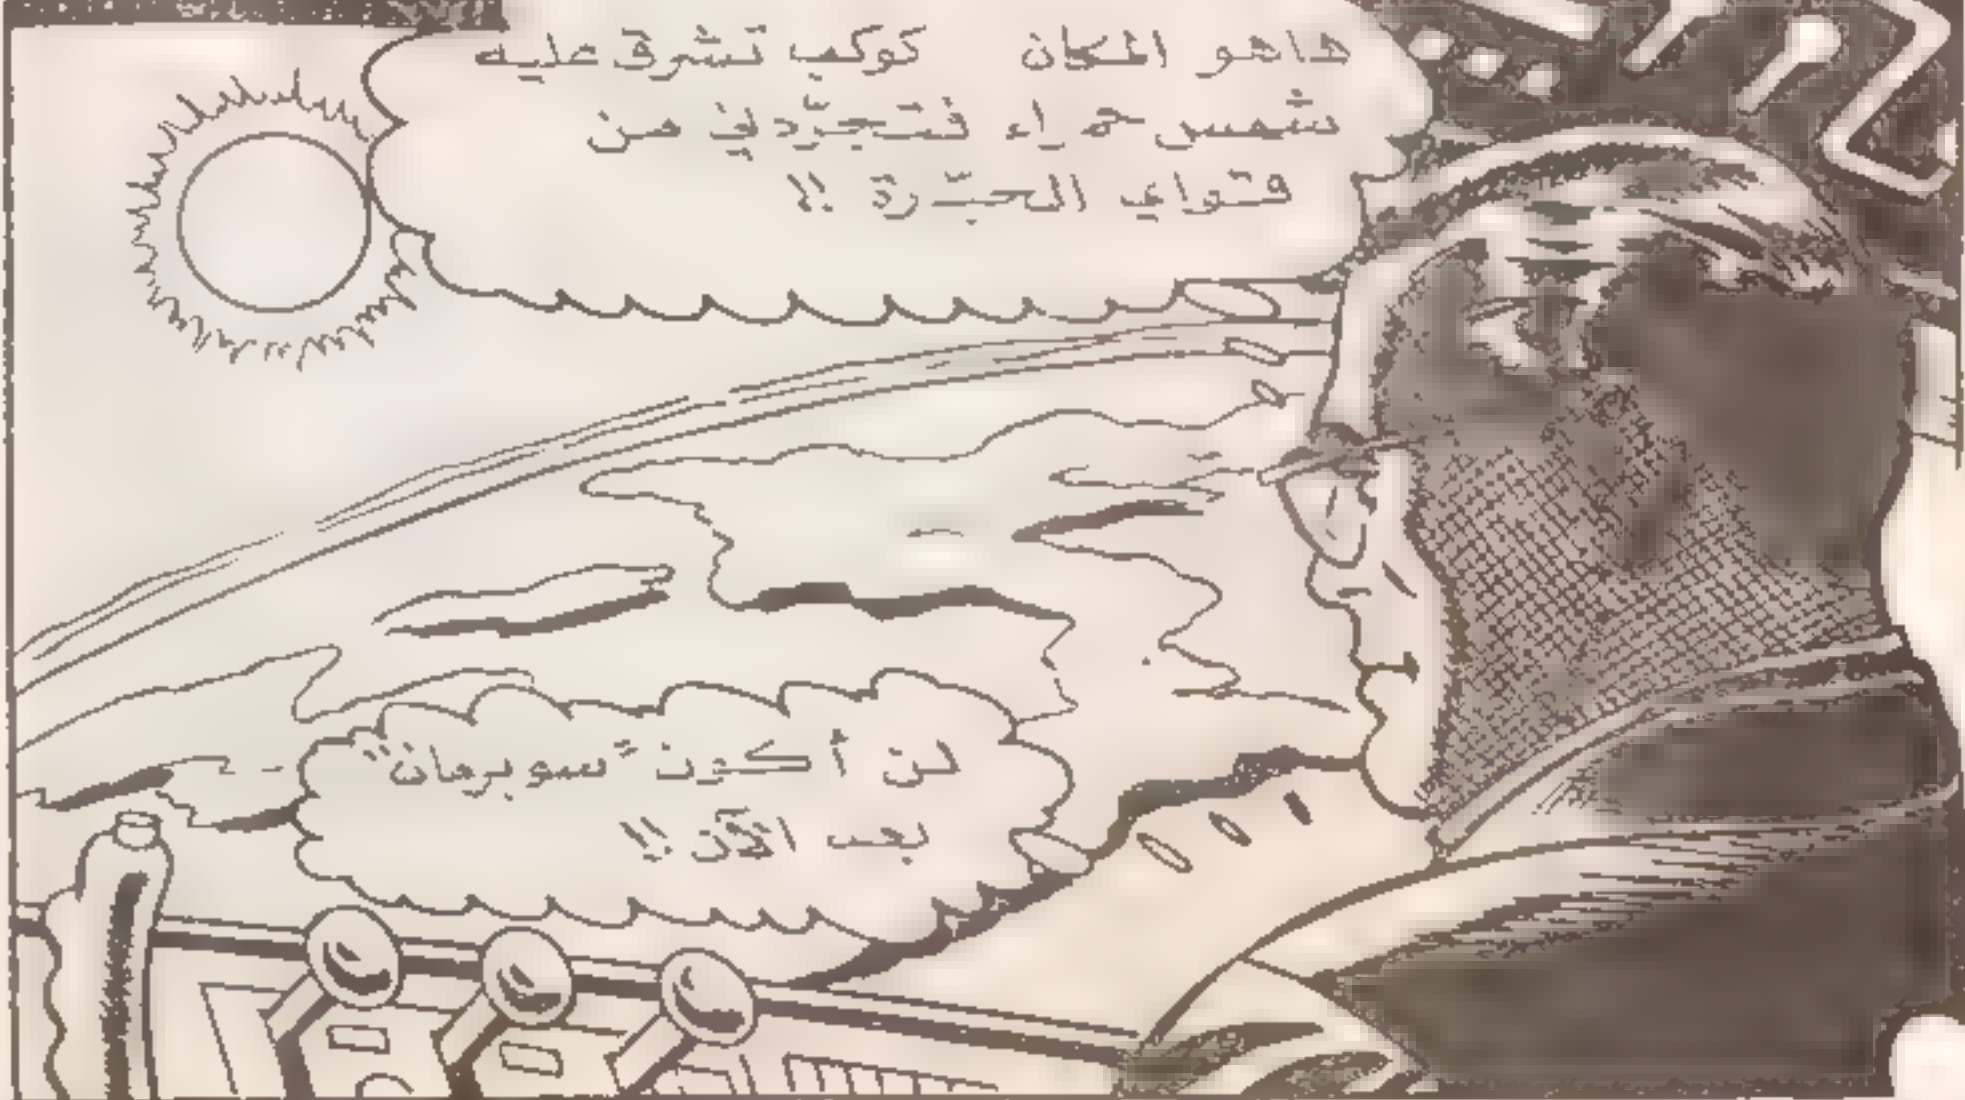 هاهو المكان كوكب تشرق عليه
شمس حمراء فتجرّدني من
قواي الجبّارة !!
لن أكون "سوبرمان"
بعد الآن !!